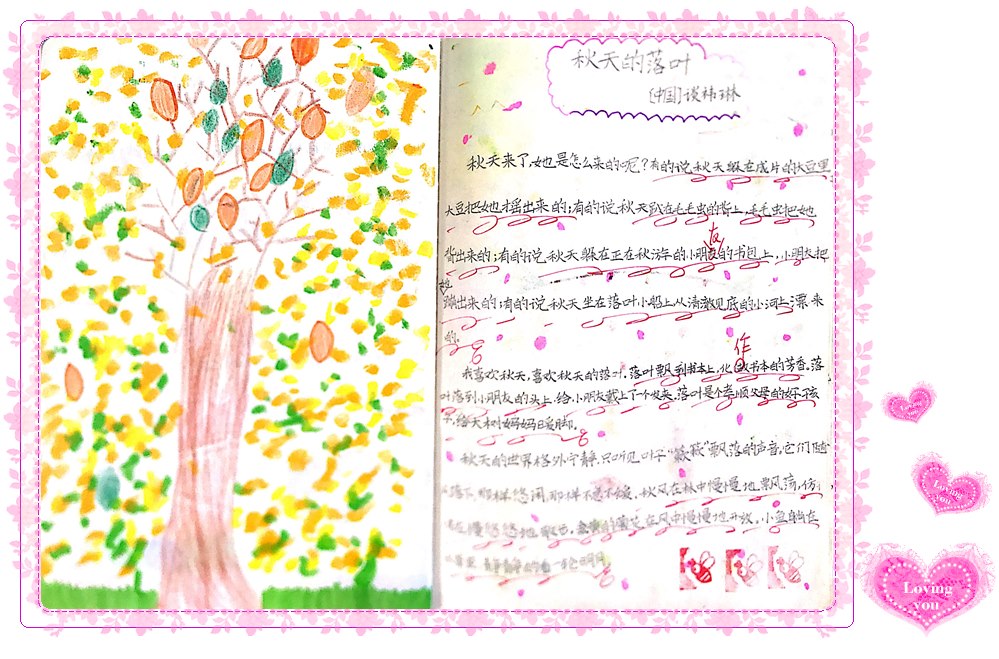 秋天的落叶
[中国]谈祎琳
秋天来了,她是怎么来的呢?有的说秋天躲在成片的大豆里,
大豆把她摇出来的;有的说秋天趴在毛毛虫的背上,毛毛虫把她
背出来的;有的说秋天躲在正在秋游的小朋友的书包上,小朋友把
出来的;有的说秋天坐在落叶小船上从清澈见底的小河上漂来
的。
我喜欢秋天,喜欢秋天的落叶。落叶飘到书本上,化作书本的芳香。落
叶落到小朋友的头上,给小朋友戴上了个发夹。落叶是个孝顺父母的好孩
子,给大树妈妈暖脚。
秋天的世界格外宁静,只听见叶子“簌簌”飘落的声音,它们随
落下,那样悠闲,那样不急不缓,秋风在林中慢慢地飘荡,仿
慢悠悠地散步,在风中慢慢地开放,小鱼躺在
Loving
you
Loving
you
Loving
you